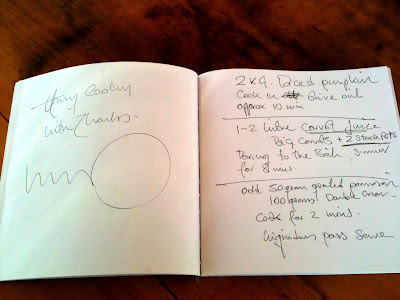 Happy Cooking
with Thanks.
2 KG. Diced pumpkin
Cook in olive oil
approx 10 min
1-2 litre Carrot Juice
Big Carrots + 2 Stock Pots
Bring to the Boil. Simmer
for 8 mins
add 50 gram grated parmesan
100 grams Double Cream
Cook for 2 mins.
pass Serve